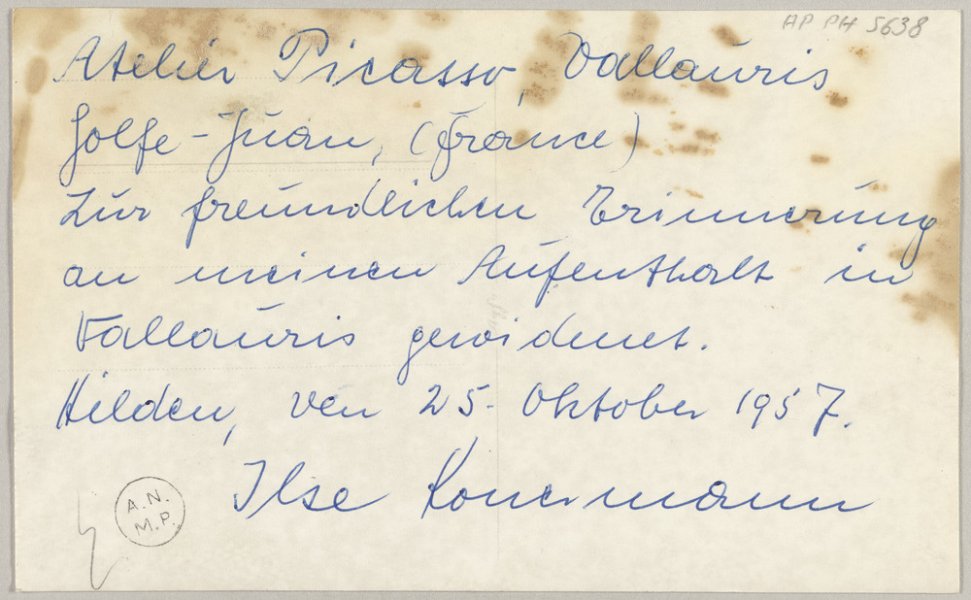 AP PH 5638
Atelier Picasso, Vallauris
Golfe-Juan, (France)
Zur freundlichen Erinnerung
an meinen Aufenthalt in
Vallauris gewidmet.
Hilden, den 25. Oktober 1957.
Ilse
A.N.
M.P.